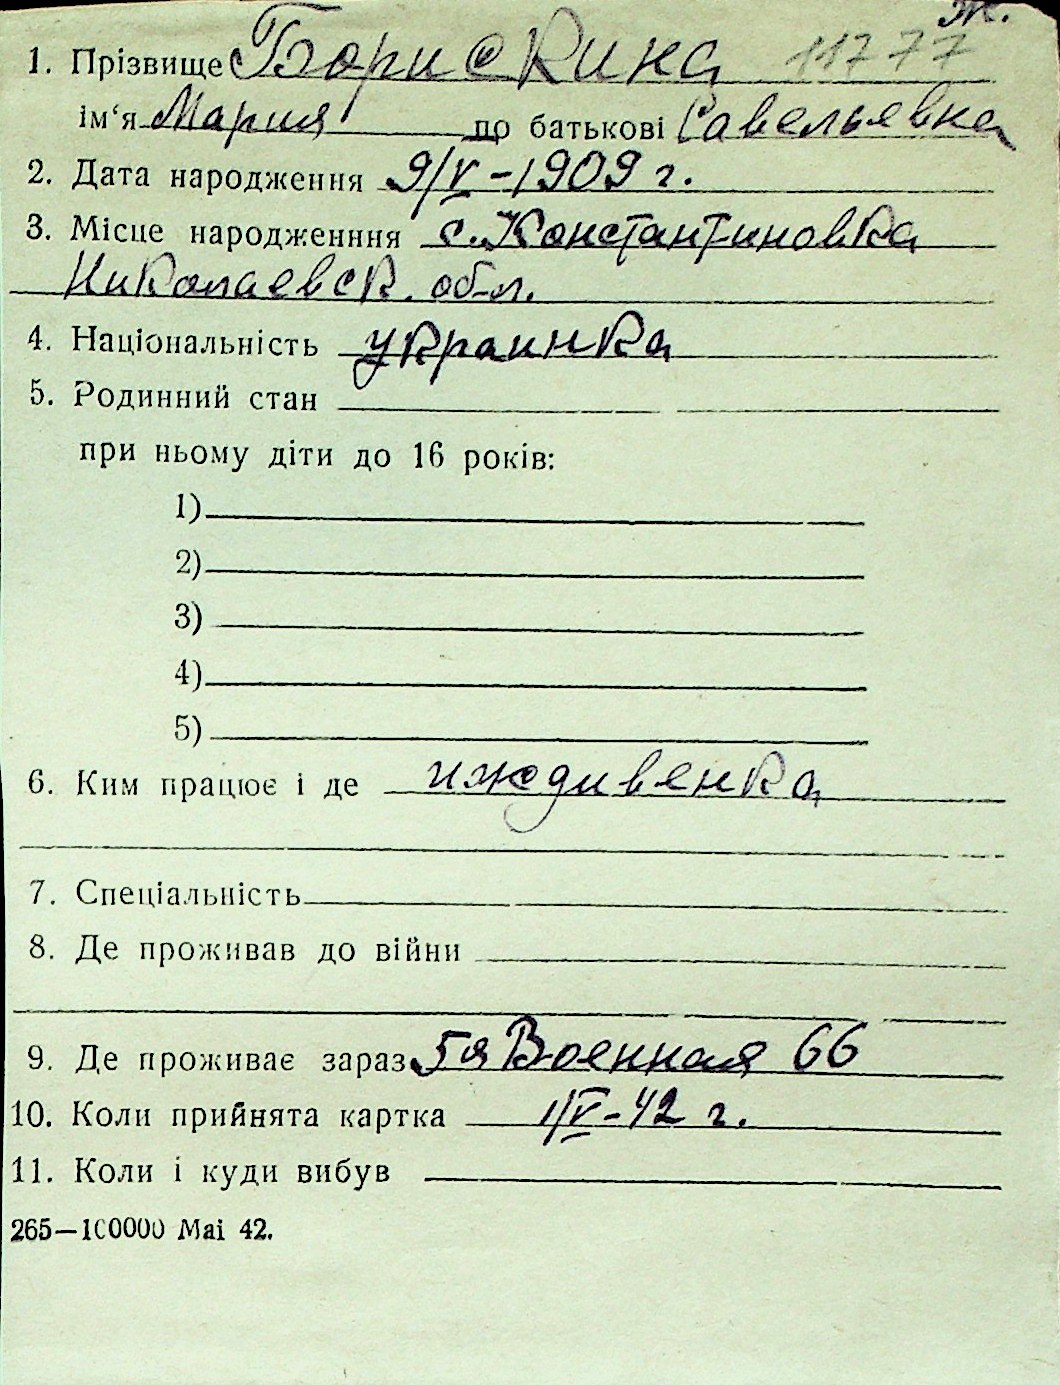 Ж.
1. Прізвище Борискина 11777
ім‘я Мария по батькові Савельевна
2. Дата народження 9/V-1909 г.
3. Місце народженння с. Константиновка
Николаевск. обл.
4. Національність украинка
5. Родинний стан
при ньому діти до 16 років:
1)
2)
3)
4)
5)
6. Ким працює і де иждивенка
7. Спеціальність
8. Де проживав до війни
9. Де проживає зараз 5я Военная 66
10. Коли прийнята картка 1/V-42 г.
11. Коли і куди вибув
265—100000 Mai 42.